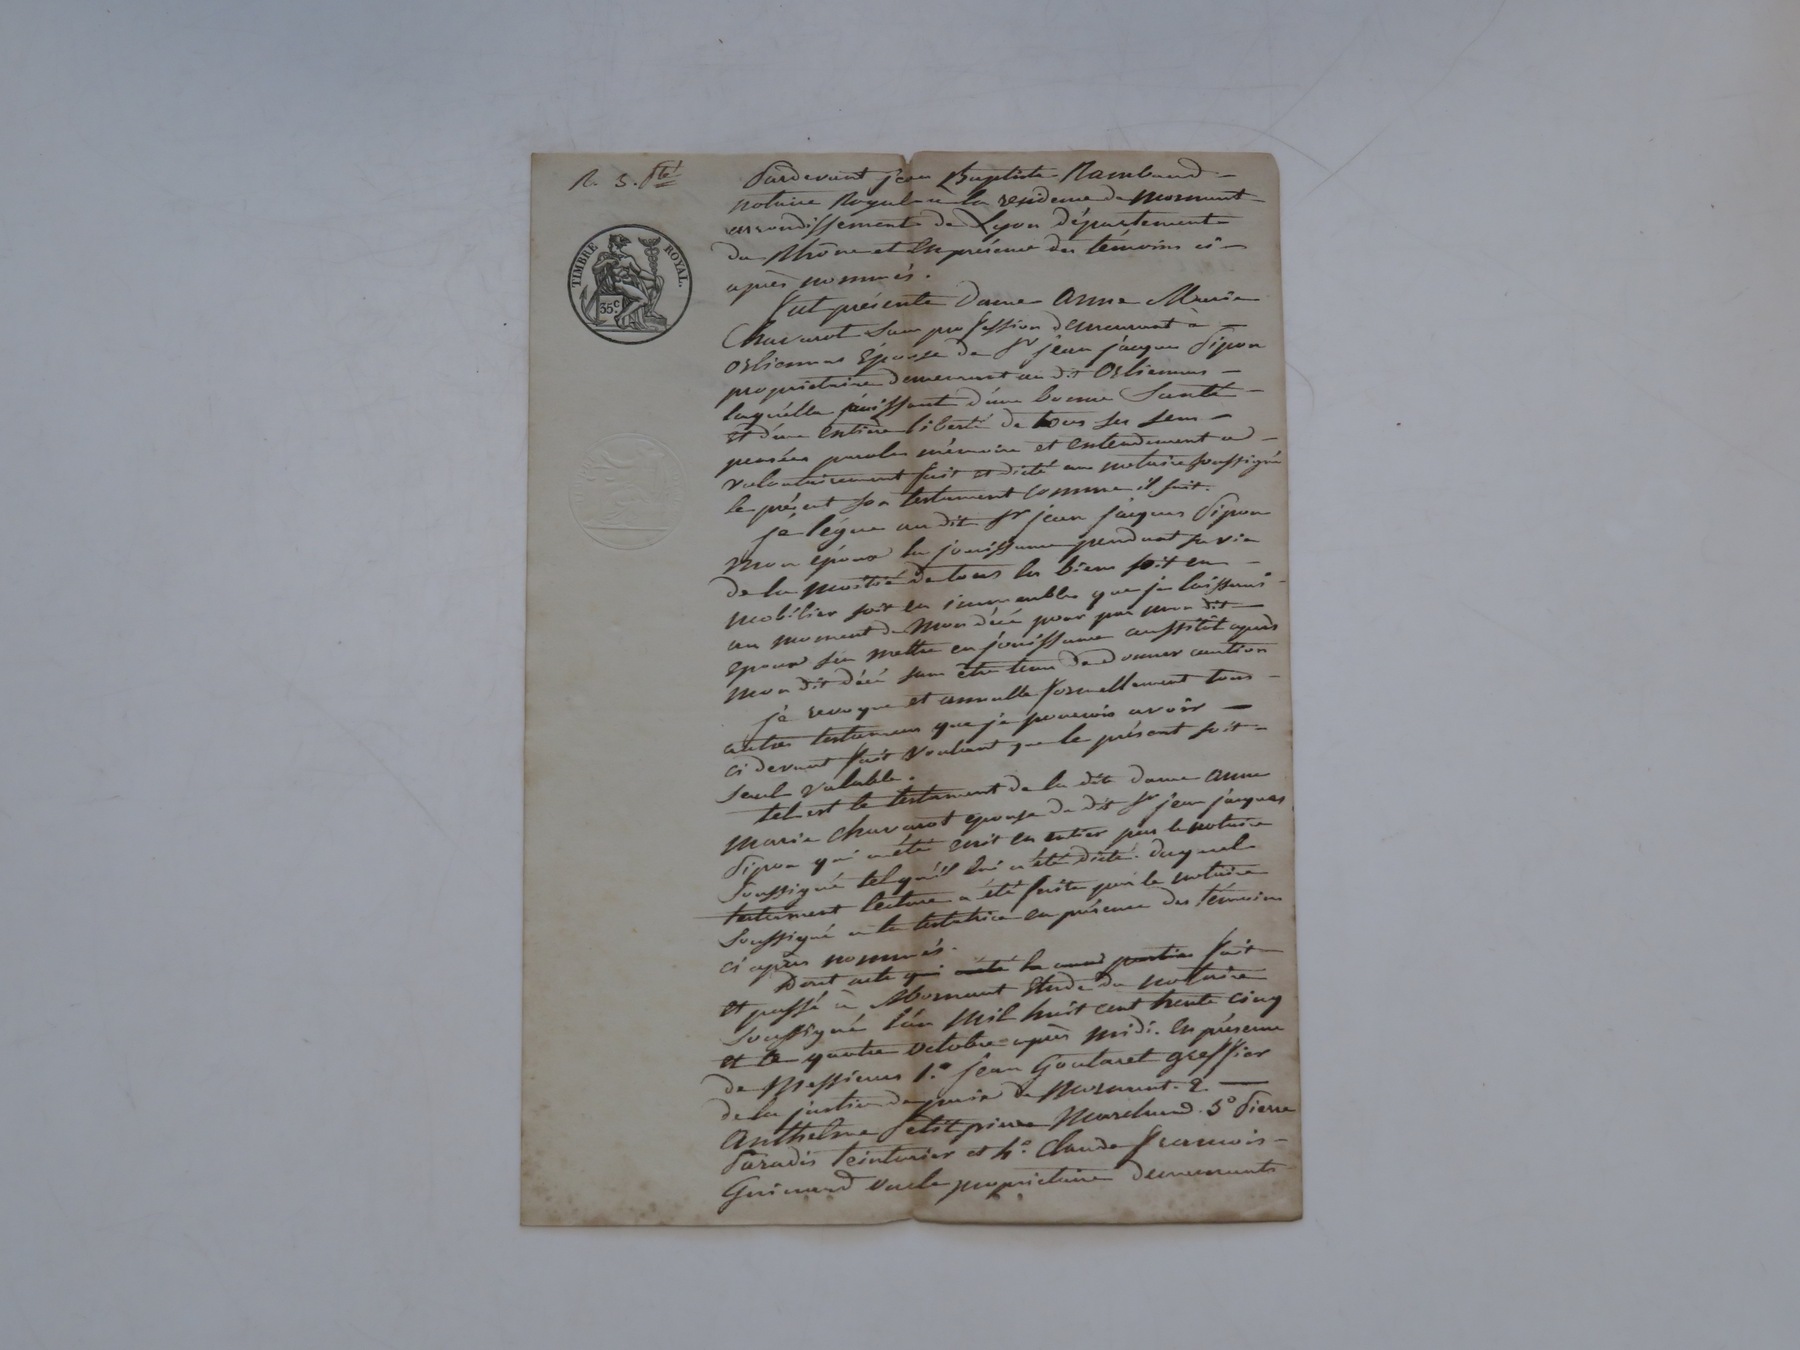 R. 3.
TIMBRE ROYAL.
35 c.
Pardevant jean Baptiste Rambaud
notaire Royal a la residence de Mornant
arrondissement de Lyon département
du Rhône et En présence des témoins ci
après nommés.
fut présente Dame Anne Marie
Chavarot sans profession demeurant à
Orlienas Epouse de Sr jean jacques Pipon
propriétaire demeurant au dit Orlienas
laquélle jouissant d'une bonne Santé
et d'une entière liberté de tous ses sens
pensées paroles mémoire et entendement a
volontairement fait et dicté au notaire soussigné
le présent son testament comme il suit.
je légue au dit Sr jean jacques Pipon
mon époux la jouissance pendant sa vie
de la moitié de tous les biens soit en
mobilier soit en immeubles que je laisserai
au moment de mon décé pour par mon dit
Epoux s'en mettre en jouissance aussitôt après
mon dit décé sans être tenu de donner caution
je revoque et annulle formellement tous
autres testamens que je pourrois avoir
ci devant fait voulant que le présent soit
seul valable.
tel est le testament de la dite dame Anne
Marie Chavarot épouse du dit Sr jean jacques
Pipon qui a été écrit en entier par le notaire
Soussigné tel qu'il lui a été dicté. duquel
testament lecture a été faite par le notaire
Soussigné a la testatrice en présence des témoins
ci après nommés.
Dont acte fait
et passé à Mornant Etude du notaire
Soussigné l'an Mil huit cent trente cinq
et le quatre octobre après midi. En présence
de Messieurs 1.° jean Goutaret greffier
de la justice de paix de Mornant. 2.
Anthelme Petitprince Marchand. 3° Pierre
Paradis teinturier et 4.° Claude francois
Guinand oncle propriétaire demeurants